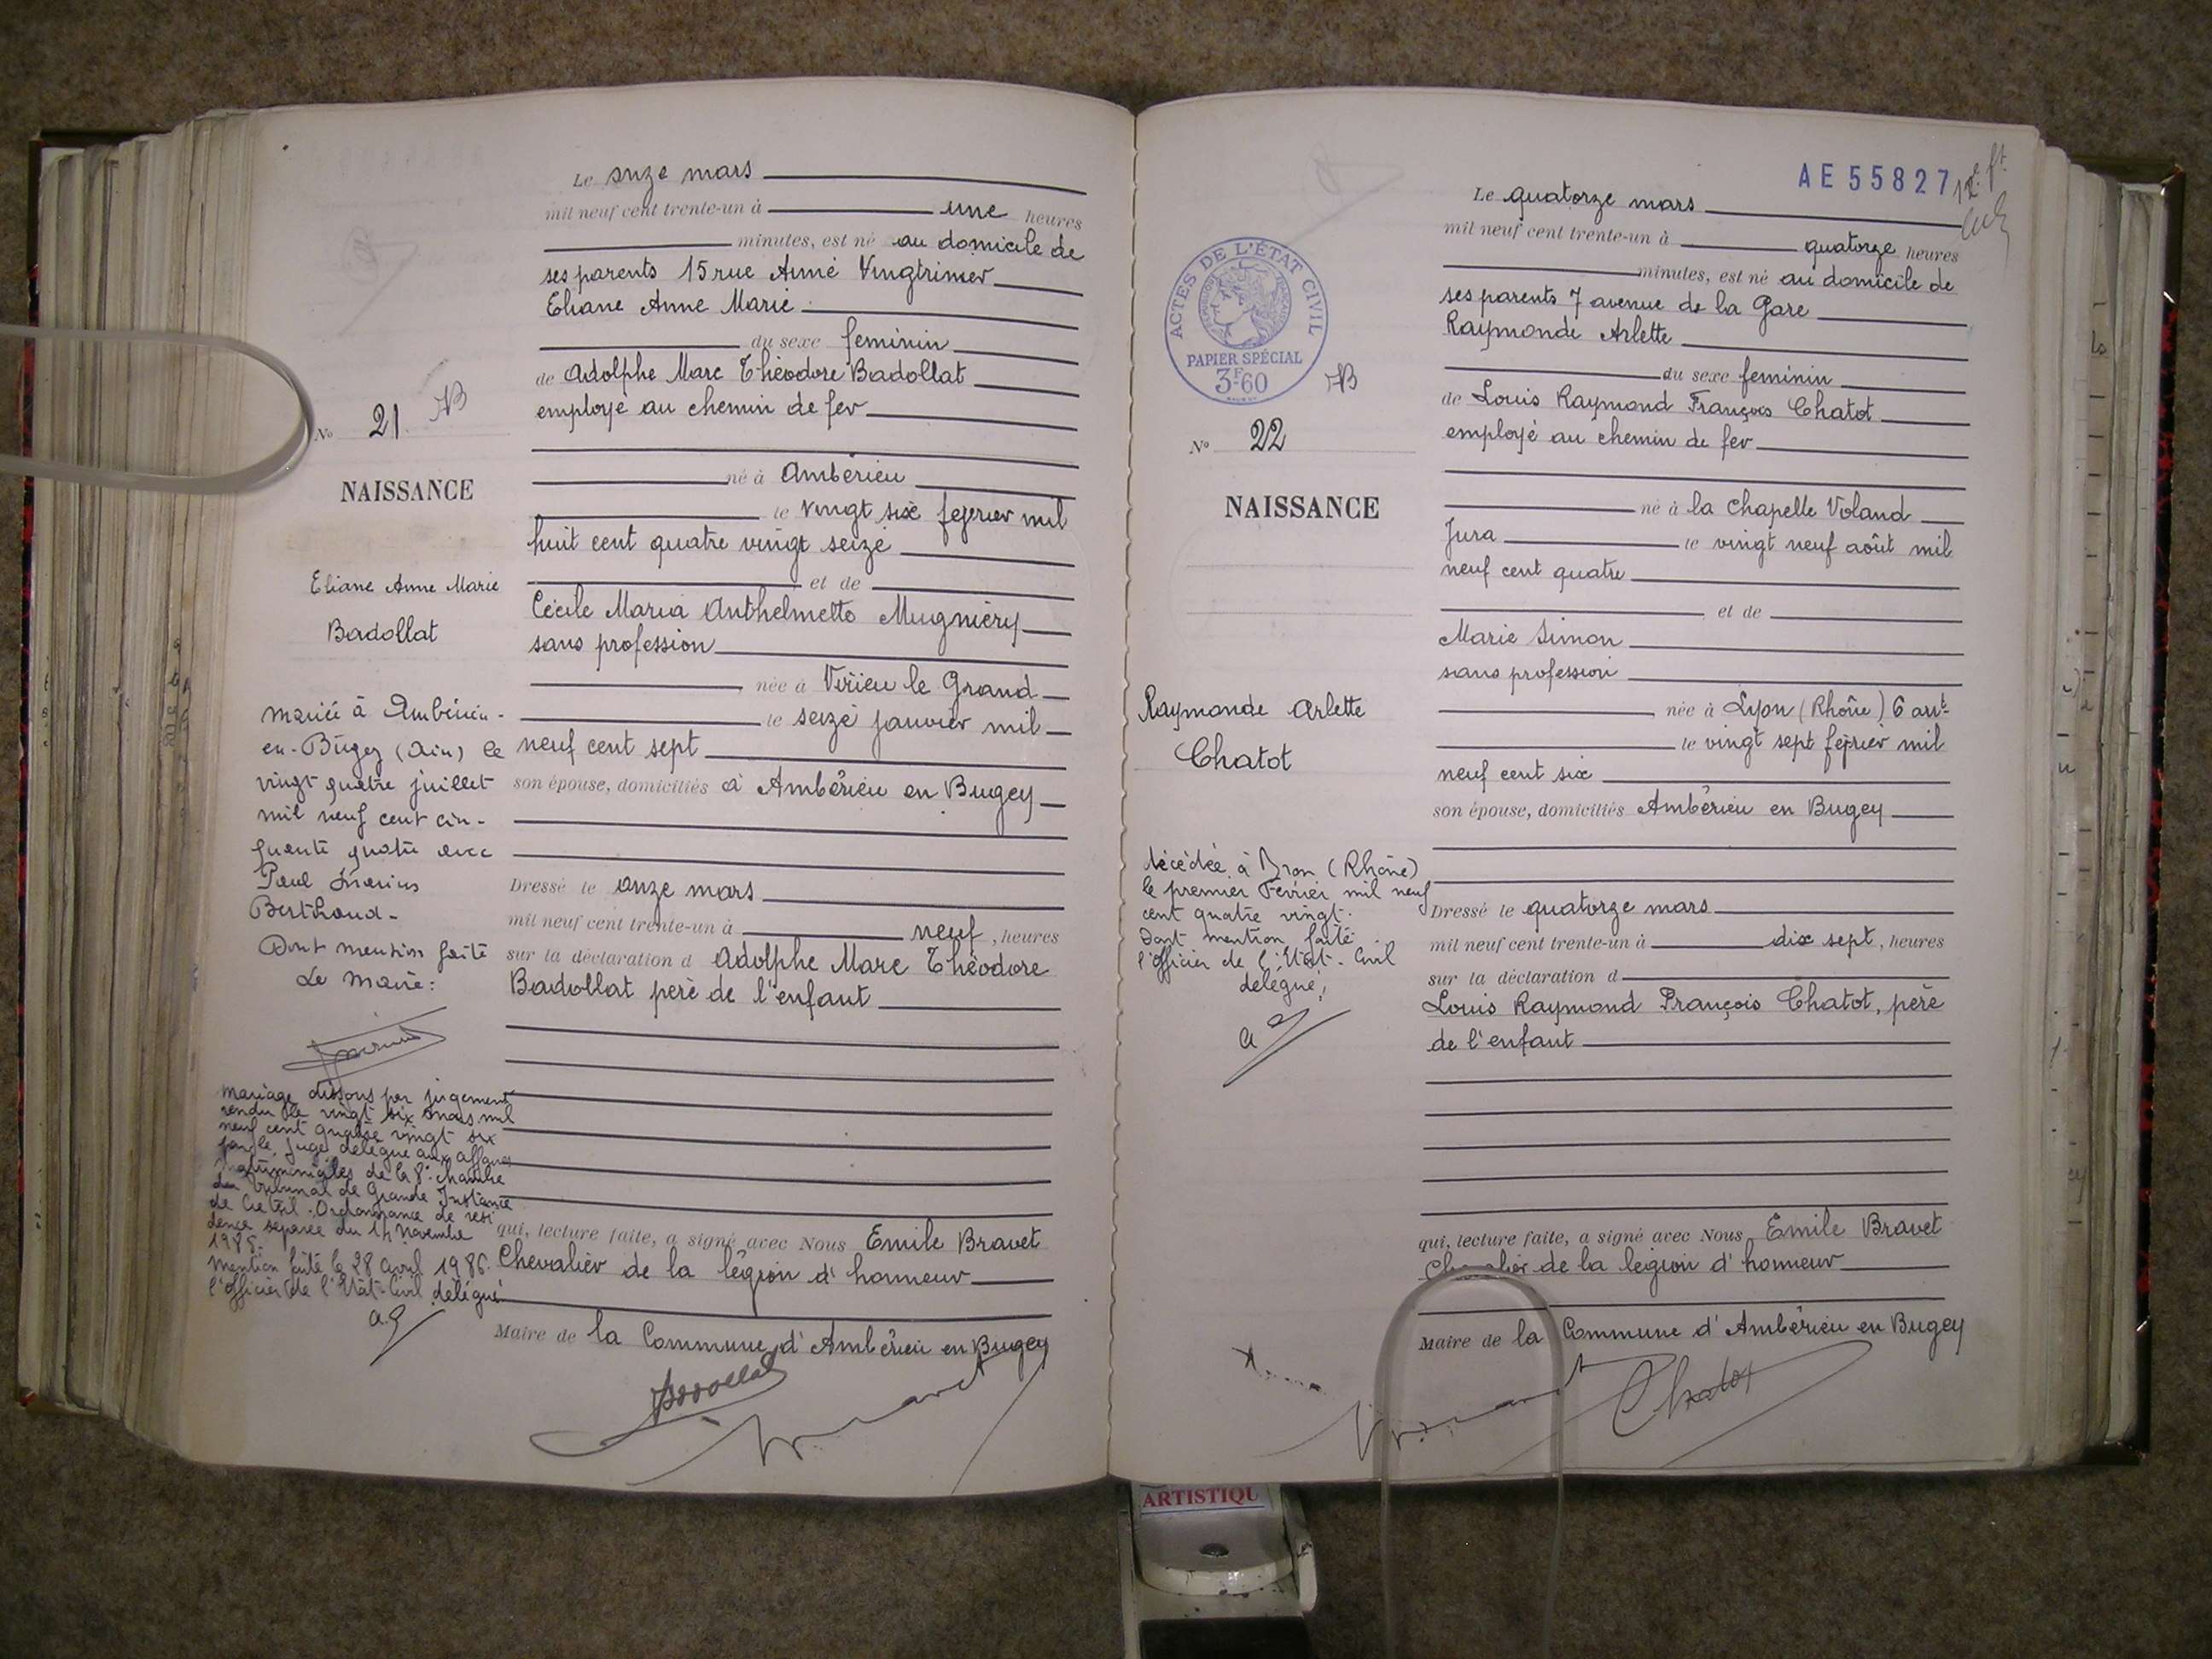 Le onze mars
mil neuf cent trente-un à une heures
minutes, est né au domicile de
ses parents 15 rue Aimé Vingtrinier
Eliane Anne Marie
du sexe feminin
de Adolphe Marc Théodore Badollat
employé au chemin de fer
né à Ambérieu
le vingt six fevrier mil
huit cent quatre vingt seize
et de
Cécile Maria Anthelmette Mugniéry
sans profession
née à Virieu le Grand
le seize janvier mil
neuf cent sept
son épouse, domiciliés à Ambérieu en Bugey
Dressé le onze mars
mil neuf cent trente-un à neuf, heures
sur la déclaration d Adolphe Marc Théodore
Badollat père de l'enfant
qui, lecture faite, a signé avec Nous Emile Bravet
Chevalier de la légion d'honneur
Maire de la Commune d'Ambérieu en Bugey
No 21
NAISSANCE
Eliane Anne Marie
Badollat
mariée à Ambérieu-
en-Bugey (Ain) le
vingt quatre juillet
mil neuf cent cin-
quante quatre avec
Paul Marius
Berthoud-
Dont mention faite
Le Maire:
mariage dissous par jugement
rendu le vingt six mars mil
neuf cent quatre vingt six
par le Juge délégué aux affaires
matrimoniales de la 8e chambre
du Tribunal de Grande Instance
de Créteil. Ordonnance de rési
dence séparée du 14 Novembre
1985.
Mention faite le 28 avril 1986.
l'officier de l'Etat-Civil délégué
AE 55827
ACTES DE L'ÉTAT CIVIL
PAPIER SPÉCIAL
3F.60
No 22
NAISSANCE
Raymonde Arlette
Chatot
décédée à Bron (Rhône)
le premier Février mil neuf
cent quatre vingt.
Dont mention faite
l'officier de l'Etat-Civil
délégué,
Le quatorze mars
mil neuf cent trente-un à quatorze heures
minutes, est né au domicile de
ses parents 7 avenue de la Gare
Raymonde Arlette
du sexe feminin
de Louis Raymond François Chatot
employé au chemin de fer
né à la Chapelle Voland
Jura le vingt neuf août mil
neuf cent quatre
et de
Marie Simon
sans profession
née à Lyon (Rhône) 6 art
le vingt sept fevrier mil
neuf cent six
son épouse, domiciliés Ambérieu en Bugey
Dressé le quatorze mars
mil neuf cent trente-un à dix sept, heures
sur la déclaration d
Louis Raymond François Chatot, père
de l'enfant
qui, lecture faite, a signé avec Nous Emile Bravet
Chevalier de la légion d'honneur
Maire de la Commune d'Ambérieu en Bugey
Chatot
ARTISTIQU